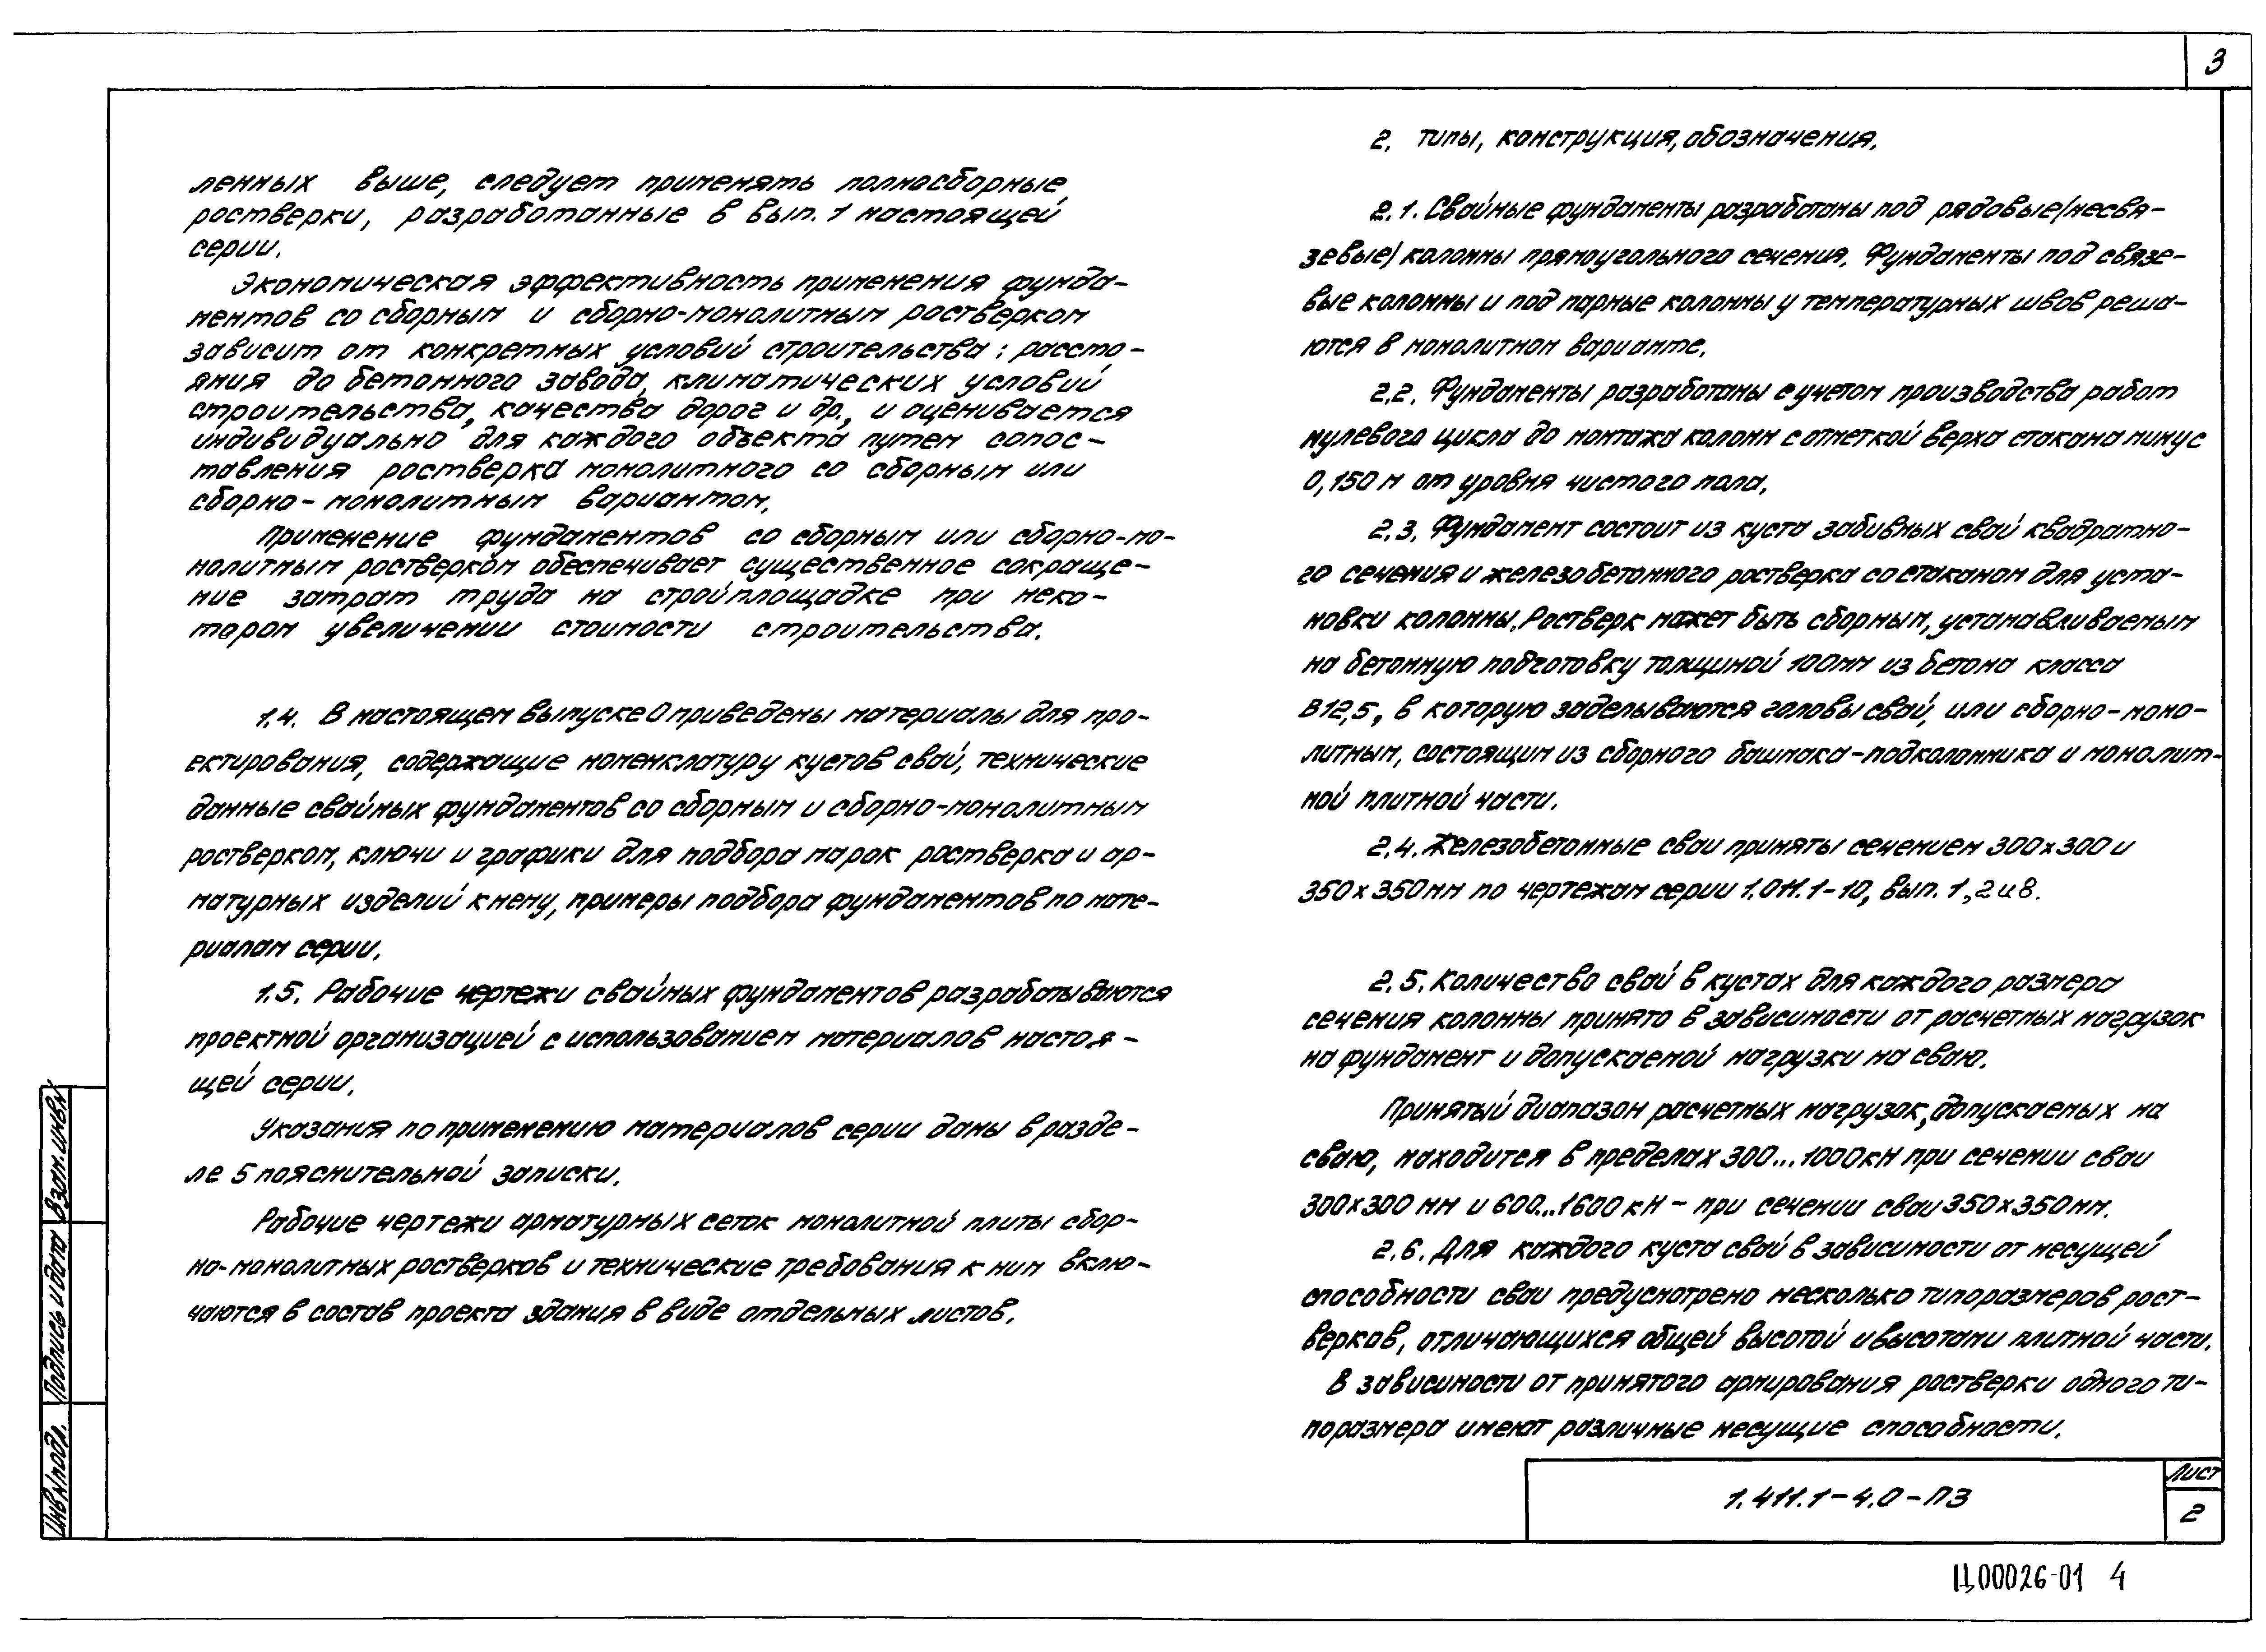 3
ленных выше, следует применять полносборные
ростверки, разработанные в вып. 1 настоящей
серии.
Экономическая эффективность применения фунда-
ментов со сборным и сборно-монолитным ростверком
зависит от конкретных условий строительства: рассто-
яния до бетонного завода, климатических условий
строительства, качества дорог и др., и оценивается
индивидуально для каждого объекта путем сопос-
тавления ростверка монолитного со сборным или
сборно-монолитным вариантом.
Применение фундаментов со сборным или сборно-мо-
нолитным ростверком обеспечивает существенное сокраще-
ние затрат труда на стройплощадке при неко-
тором увеличении стоимости строительства.
1.4. В настоящем выпуске 0 приведены материалы для про-
ектирования, содержащие номенклатуру кустов свай, технические
данные свайных фундаментов со сборным и сборно-монолитным
ростверком, ключи и графики для подбора марок ростверка и ар-
матурных изделий к нему, примеры подбора фундаментов по мате-
риалам серии.
1.5. Рабочие чертежи свайных фундаментов разрабатываются
проектной организацией с использованием материалов настоя-
щей серии.
Указания по применению материалов серии даны в разде-
ле 5 пояснительной записки.
Рабочие чертежи арматурных сеток монолитной плиты сбор-
но-монолитных ростверков и технические требования к ним вклю-
чаются в состав проекта здания в виде отдельных листов.
2. Типы, конструкция, обозначения.
2.1. Свайные фундаменты разработаны под рядовые (несвя-
зевые) колонны прямоугольного сечения. Фундаменты под связе-
вые колонны и под парные колонны у температурных швов реша-
ются в монолитном варианте.
2.2. Фундаменты разработаны с учетом производства работ
нулевого цикла до монтажа колонн с отметкой верха стакана минус
0,150 м от уровня чистого пола.
2.3. Фундамент состоит из куста забивных свай квадратно-
го сечения и железобетонного ростверка со стаканом для уста-
новки колонны. Ростверк может быть сборным, устанавливаемым
на бетонную подготовку толщиной 100мм из бетона класса
В12,5, в которую заделываются головы свай, или сборно-моно-
литным, состоящим из сборного башмака-подколонника и монолит-
ной плитной части.
2.4. Железобетонные сваи приняты сечением 300х300 и
350х350мм по чертежам серии 1.011.1-10, вып. 1, 2 и 8.
2.5. Количество свай в кустах для каждого размера
сечения колонны принято в зависимости от расчетных нагрузок
на фундамент и допускаемой нагрузки на сваю.
Принятый диапазон расчетных нагрузок, допускаемых на
сваю, находится в пределах 300...1000кН при сечении сваи
300х300 мм и 600...1600 кН - при сечении сваи 350х350мм.
2.6. Для каждого куста свай в зависимости от несущей
способности сваи предусмотрено несколько типоразмеров рост-
верков, отличающихся общей высотой и высотами плитной части.
В зависимости от принятого армирования ростверки одного ти-
поразмера имеют различные несущие способности.
Инв.№подл. Подпись и дата Взам.инв№
1.411.1-4.0-ПЗ
Лист
2
Ц00026-01 4